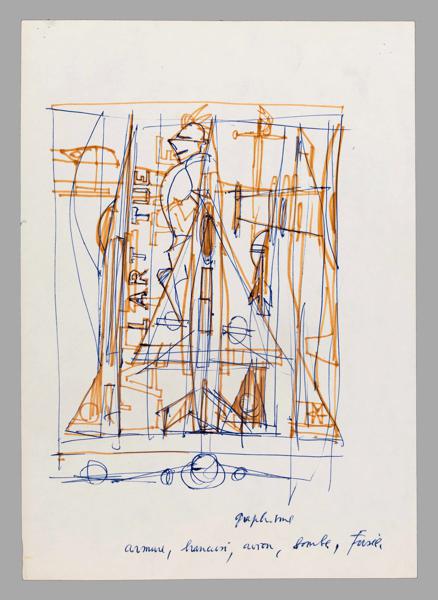 L'ART TUE
graphisme
armure, brancusi, avion, bombe, Fusée.